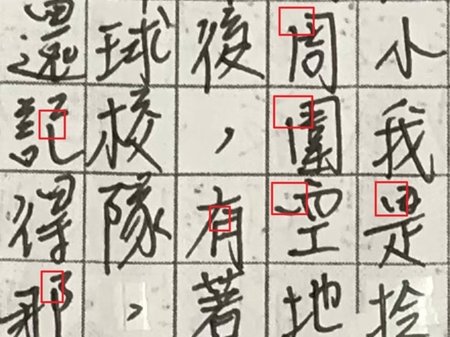 小我是
周圍空地
後，有著
球校隊，
還記得那